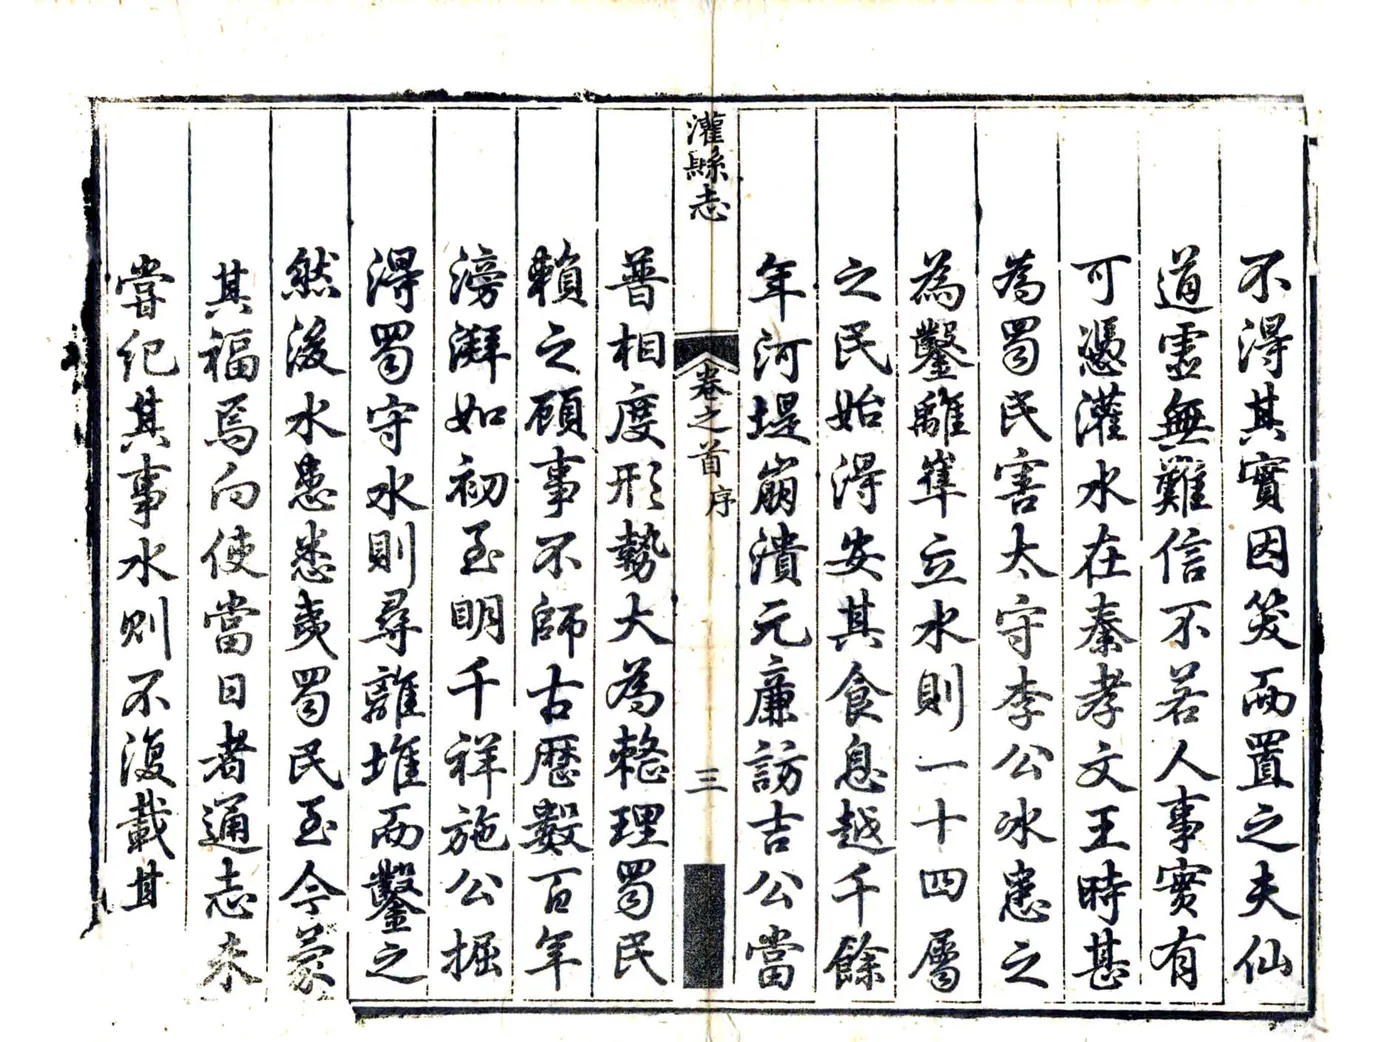 不得其實因笑而置之夫仙
道虛無難信不若人事實有
可憑灌水在秦孝文王時甚
為蜀民害太守李公冰患之
為鑿離隼立水則一十四屬
之民始得安其食息越千餘
年河堤崩潰元廉訪吉公當
灌縣志
卷之首
序
三
普相度形勢大為整理蜀民
賴之顧事不師古歷數百年
滂湃如初至明千祥施公掘
得蜀守水則尋離堆而鑿之
然後水患悉夷蜀民至今蒙
其福焉向使當日者通志未
嘗紀其事水則不復載其